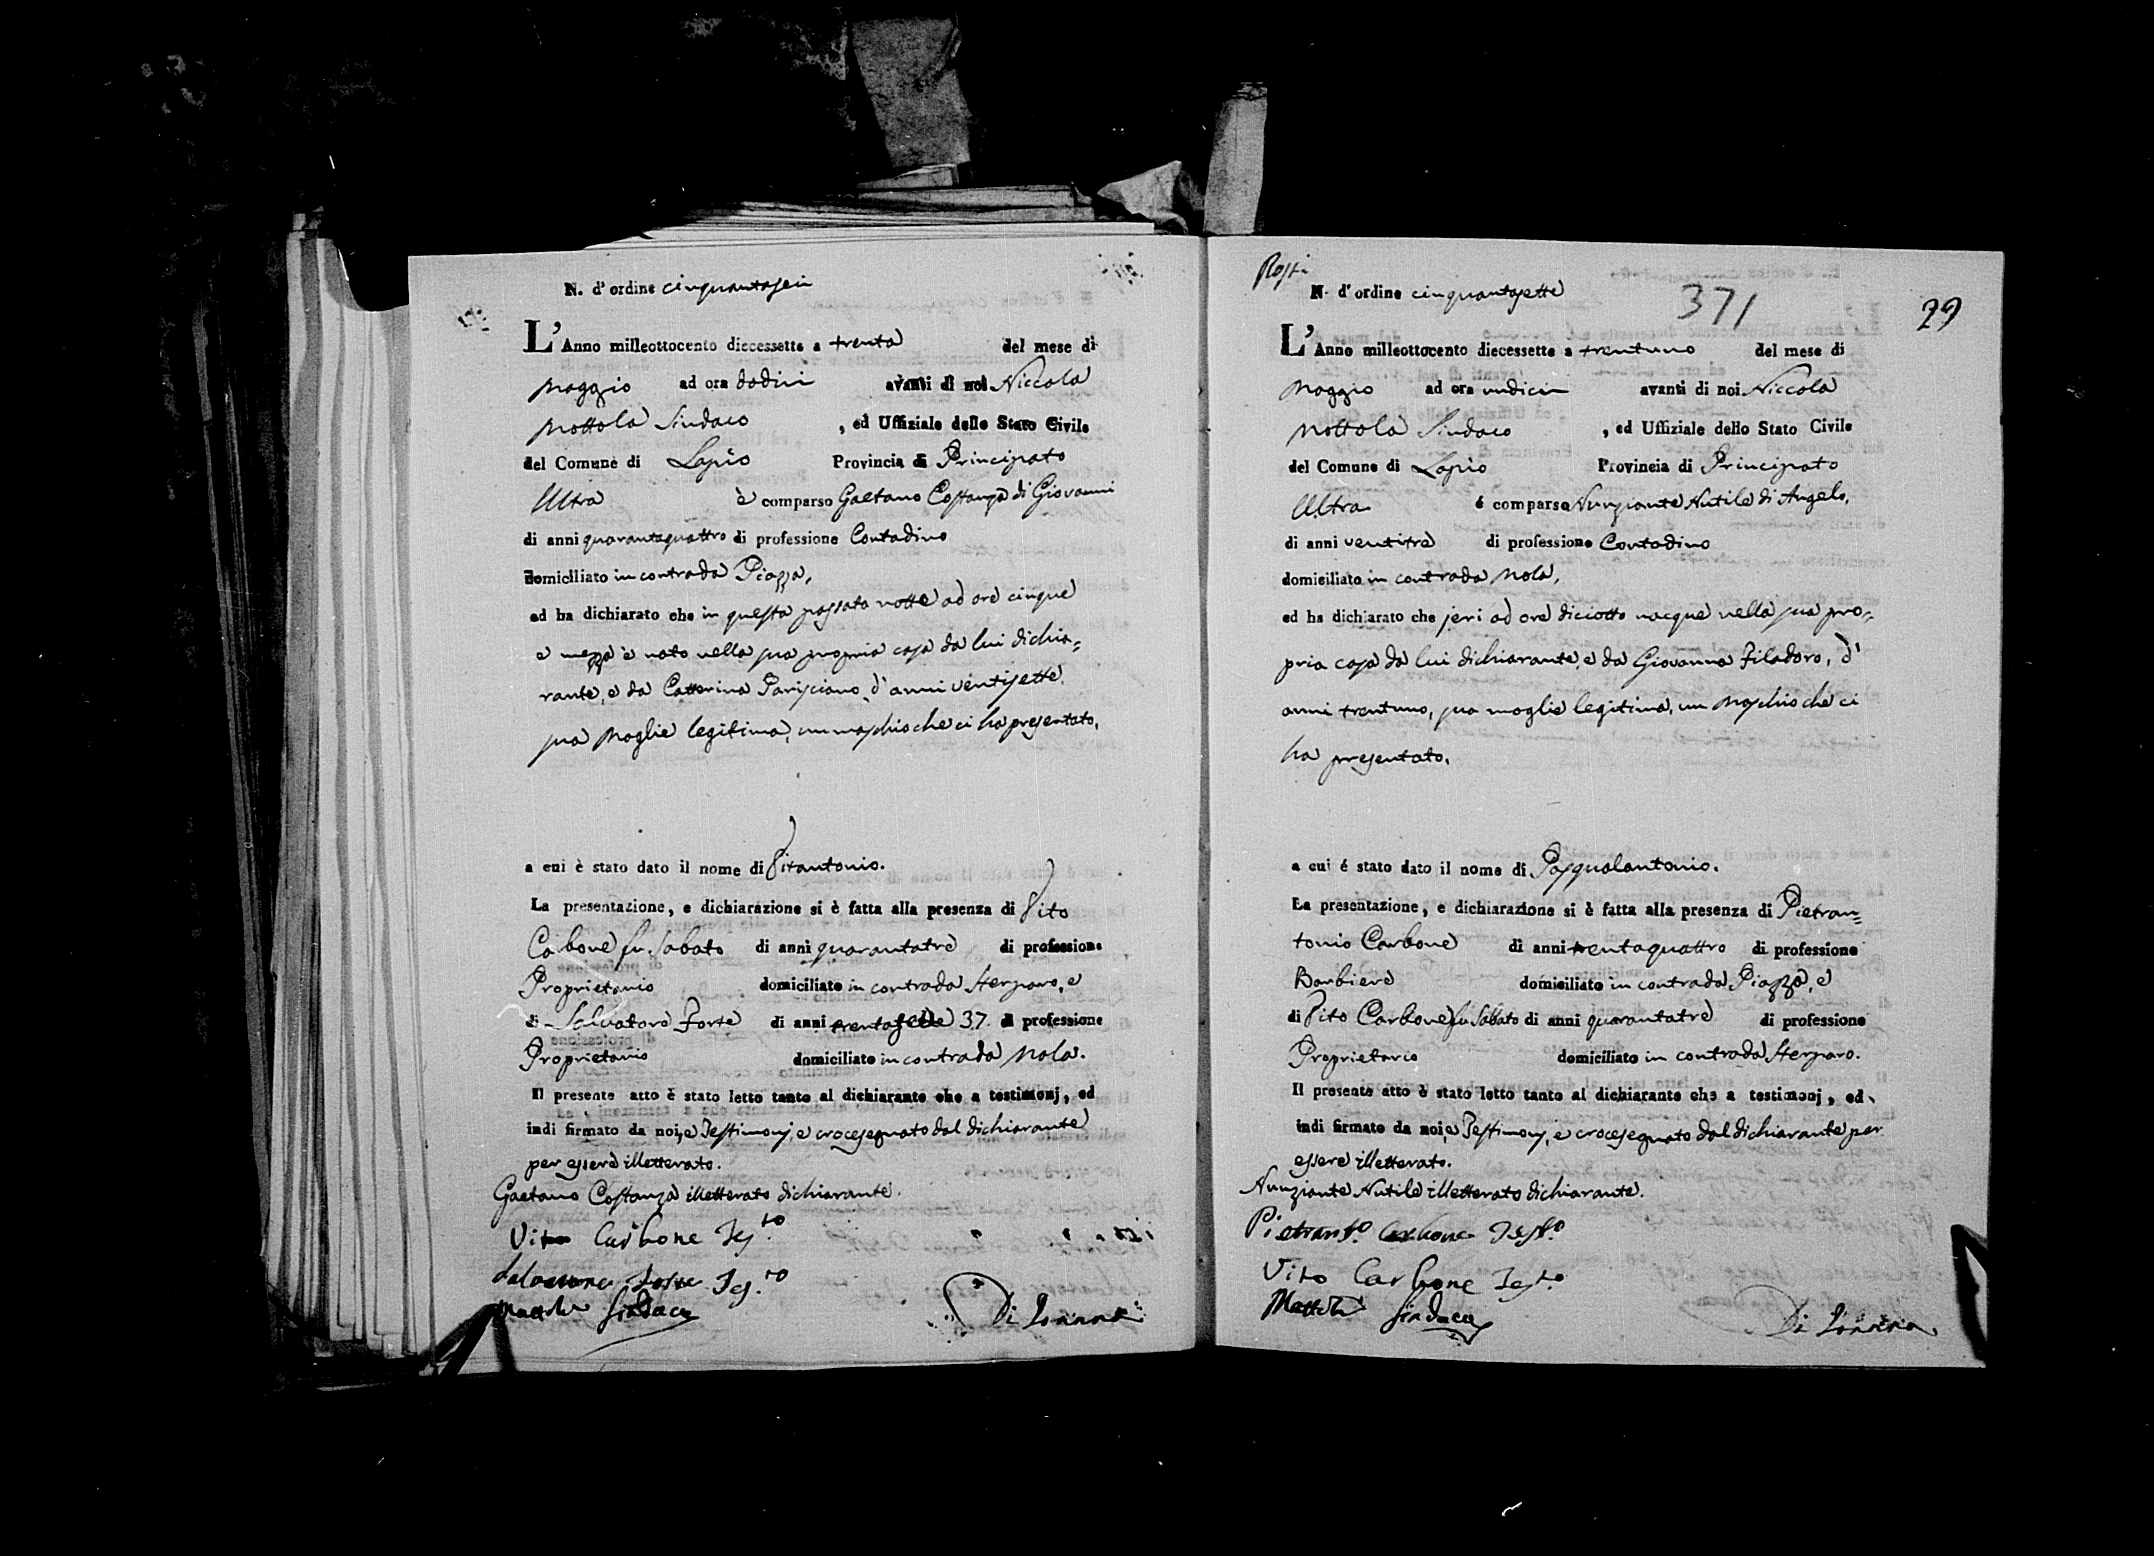 N. d' ordine cinquantasei
L' Anno milleottocento diecessette a trenta del mese di
Maggio ad ora dodici avanti di noi Niccola
Mottola Sindaco , ed Uffiziale dello Stato Civile
del Comune di Lapio Provincia di Principato
Ultra è comparso Gaetano Costanza di Giovanni
di anni quarantaquattro di professione Contadino
domiciliato in contrada Piazza,
ed ha dichiarato che in questa passata notte ad ore cinque
e mezza è nato nella sua propria casa da lui dichia=
rante, e da Catterina Parisciano, d'anni ventisette
sua Moglie legitima, un maschio che ci ha presentato,
a cui è stato dato il nome di Vitantonio.
La presentazione, e dichiarazione si è fatta alla presenza di Vito
Carbone fu Sabato di anni quarantatre di professione
Proprietario domiciliato in contrada Herparo, e
di Salvatore Forte di anni trentasette 37. di professione
Proprietario domiciliato in contrada Nola.
Il presente atto è stato letto tanto al dichiarante che a testimonj, ed
indi firmato da noi, e Testimonj, e crocesegnato dal dichiarante
per essere illetterato.
Gaetano Costanza illetterato dichiarante.
Vito Carbone Tes.to
Salvatore Forte Tes.to
Mottola Sindaco
Rosti
N. d' ordine cinquantasette
371
29
L' Anno milleottocento diecessette a trentuno del mese di
Maggio ad ora undici avanti di noi Niccola
Mottola Sindaco , ed Uffiziale dello Stato Civile
del Comune di Lapio Provincia di Principato
Ultra é comparso Nunziante Nutile di Angelo,
di anni ventitre di professione Contadino
domiciliato in contrada Nola,
ed ha dichiarato che jeri ad ore diciotto nacque nella sua pro=
pria casa da lui dichiarante, e da Giovanna Filadoro, d'
anni trentuno, sua moglie legitima, un Maschio che ci
ha presentato,
a cui é stato dato il nome di Pasqualantonio.
La presentazione, e dichiarazione si è fatta alla presenza di Pietran=
tonio Carbone di anni trentaquattro di professione
Barbiere domiciliato in contrada Piazza, e
di Vito Carbone fu Sabato di anni quarantatre di professione
Proprietario domiciliato in contrada Herparo.
Il presente atto è stato letto tanto al dichiarante che a testimonj, ed
indi firmato da noi, e Testimonj, e crocesegnato dal dichiarante per
essere illetterato.
Nunziante Nutile illetterato dichiarante.
Pietrant.o Carbone Test.o
Vito Carbone Tes.to
Mottola Sindaco